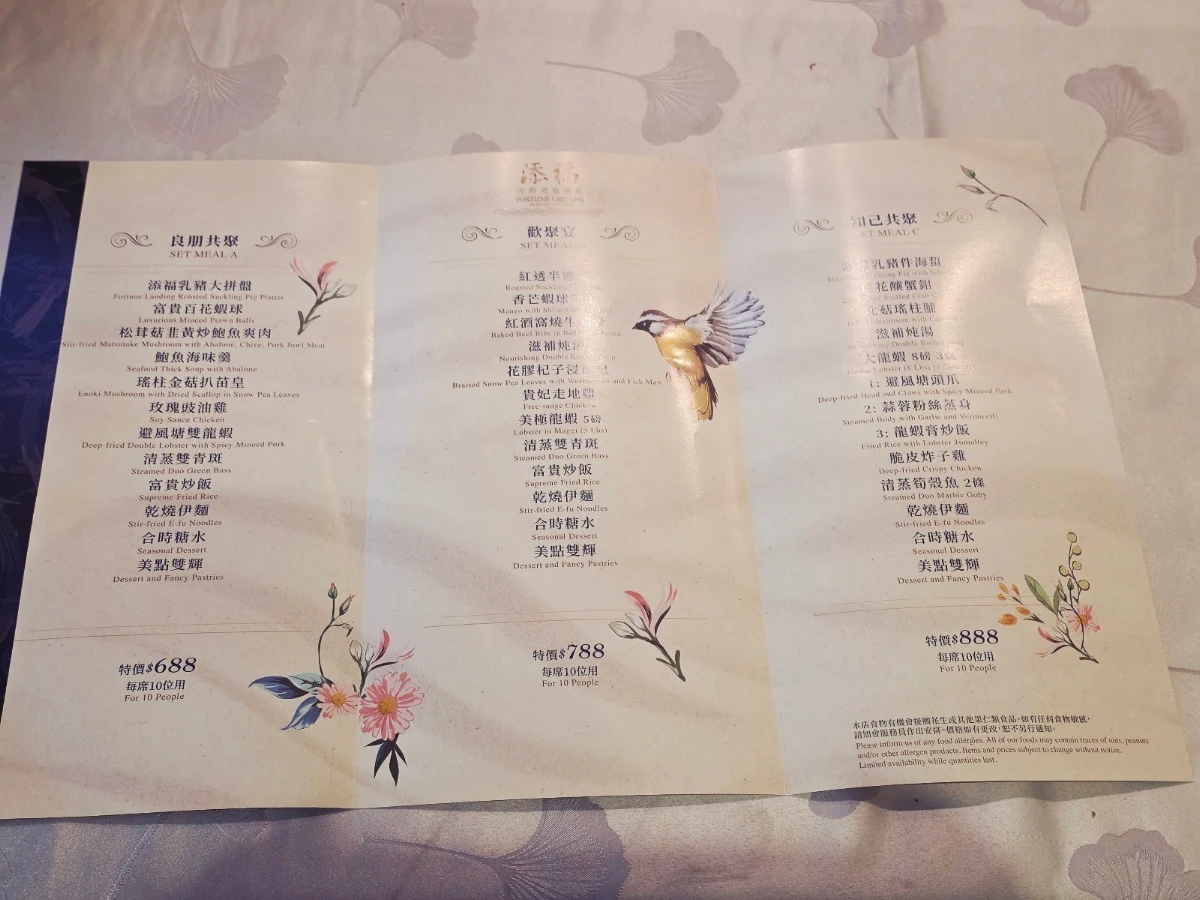 良朋共聚
SET MEAL A
添福乳豬大拼盤
Fortune Landing Roasted Suckling Pig Platter
富貴百花蝦球
Luxurious Minced Prawn Balls
松茸菇韭黃炒鮑魚爽肉
Stir-fried Matsutake Mushroom with Abalone, Chive, Pork Jowl Meat
鮑魚海味羹
Seafood Thick Soup with Abalone
瑤柱金菇扒苗皇
Enoki Mushroom with Dried Scallop in Snow Pea Leaves
玫瑰豉油雞
Soy Sauce Chicken
避風塘雙龍蝦
Deep-fried Double Lobster with Spicy Minced Pork
清蒸雙青斑
Steamed Duo Green Bass
富貴炒飯
Supreme Fried Rice
乾燒伊麵
Stir-fried E-fu Noodles
合時糖水
Seasonal Dessert
美點雙輝
Dessert and Fancy Pastries
特價$688
每席10位用
For 10 People
添福
FORTUNE LANDING
歡聚宴
SET MEAL
紅透半
Roasted Suckling
香芒蝦球
Mango with
紅酒窩燒牛
Baked Beef Ribs in Red
滋補炖
Nourishing Double
花膠杞子浸
Braised Snow Pea Leaves with and Fish Maw
貴妃走地雞
Free-range Chicken
美極龍蝦 5磅
Lobster in Maggi (5 Lbs)
清蒸雙青斑
Steamed Duo Green Bass
富貴炒飯
Supreme Fried Rice
乾燒伊麵
Stir-fried E-fu Noodles
合時糖水
Seasonal Dessert
美點雙輝
Dessert and Fancy Pastries
特價$788
每席10位用
For 10 People
知己共聚
SET MEAL C
乳豬件海蜇
花釀蟹鉗
Stuffed Crab
菇瑤柱脯
Mushroom with
滋補炖湯
Double
大龍蝦 8磅
Lobster (8 Lbs)
1: 避風塘頭爪
Deep-fried Head and Claws with Spicy Minced Pork
2: 蒜蓉粉絲蒸身
Steamed Body with Garlic and Vermicelli
3: 龍蝦膏炒飯
Fried Rice with Lobster Tomalley
脆皮炸子雞
Deep-fried Crispy Chicken
清蒸筍殼魚 2條
Steamed Duo Marble Goby
乾燒伊麵
Stir-fried E-fu Noodles
合時糖水
Seasonal Dessert
美點雙輝
Dessert and Fancy Pastries
特價$888
每席10位用
For 10 People
本店食物有機會接觸花生或其他果仁類食品。如有任何食物敏感，
請知會服務員作出安排。價格如有更改，恕不另行通知。
Please inform us of any food allergies. All of our foods may contain traces of nuts, peanuts
and/or other allergen products. Items and prices subject to change without notice.
Limited availability while quantities last.